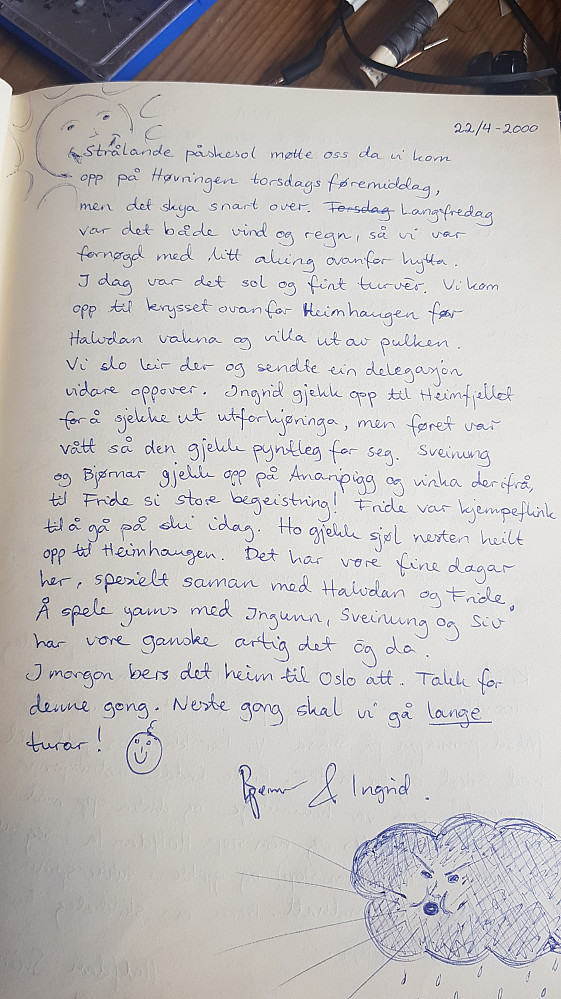 22/4-2000
Strålande påskesol møtte oss da vi kom
opp på Høvningen torsdags føremiddag,
men det skya snart over. Torsdag Langfredag
var det både vind og regn, så vi var
fornøgd med litt aking ovanfor hytta.
I dag var det sol og fint turvêr. Vi kom
opp til krysset ovanfor Heimhaugen før
Halvdan vakna og villa ut av pulken.
Vi slo leir der og sendte ein delegasjon
vidare oppover. Ingrid gjekk opp til Heimfjellet
for å sjekke ut utforkjøringa, men føret var
vått så den gjekk pyntleg for seg. Sveinung
og Bjørnar gjekk opp på Ananipigg og vinka derifrå,
til Fride si store begeistning! Fride var kjempeflink
til å gå på ski idag. Ho gjekk sjøl nesten heilt
opp til Heimhaugen. Det har vore fine dagar
her, spesielt saman med Halvdan og Fride.
Å spele yams med Ingunn, Sveinung og Siv
har vore ganske artig det òg da.
I morgon bers det heim til Oslo att. Takk for
denne gong. Neste gong skal vi gå lange
turar!
& Ingrid.